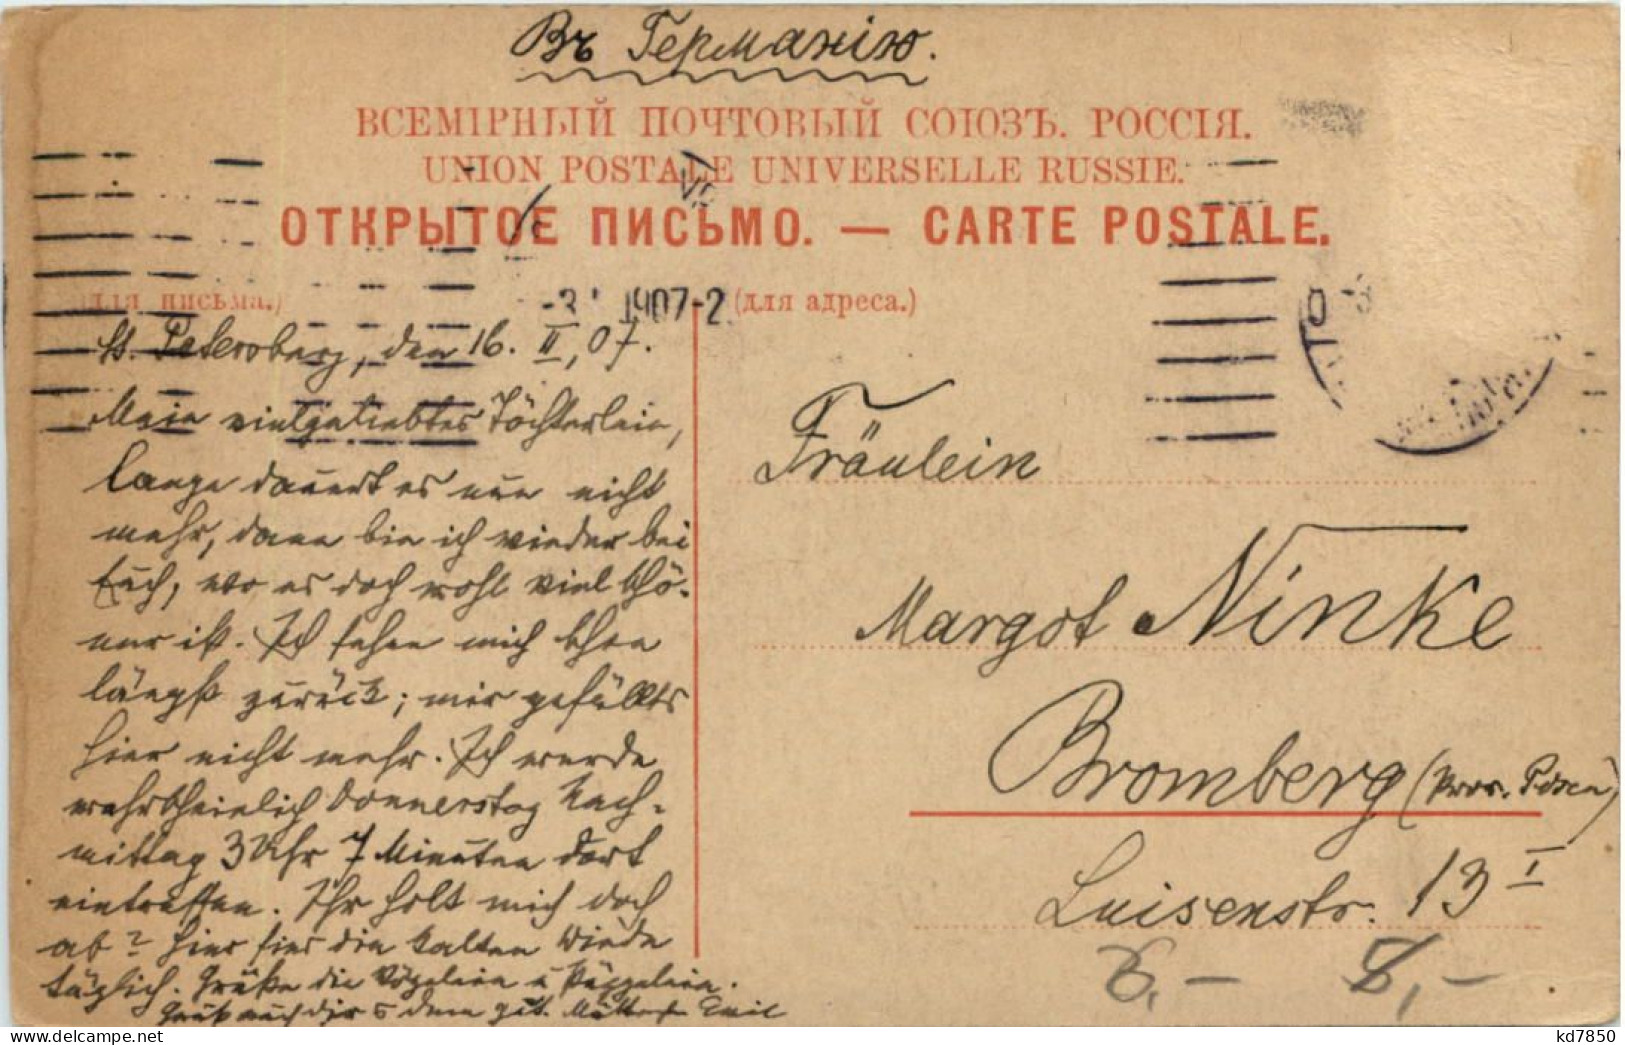 Въ Германію.
ВСЕМІРНЫЙ ПОЧТОВЫЙ СОЮЗЪ. РОССІЯ.
UNION POSTALE UNIVERSELLE RUSSIE.
ОТКРЫТОЕ ПИСЬМО. — CARTE POSTALE.
для письма.)
(для адреса.)
1907-2
St. Petersburg, den 16. II, 07.
Mein vielgeliebtes Töchterlein,
lange dauert es nun nicht
mehr, dann bin ich wieder bei
Euch, wo es doch wohl viel schö-
ner ist. Ich sehne mich schon
längst zurück; mir gefällts
hier nicht mehr. Ich werde
wahrscheinlich Donnerstag Nach-
mittag 3 Uhr 7 Minuten dort
eintreffen. Ihr holt mich doch
ab? Hier sind die kalten Winde
täglich. Grüße die Vögelein u
Gruß auch dir u dem gut. Emil
Fräulein
Margot Ninke
Bromberg (Prov. Posen)
Luisenstr. 13 I
8,— 8,—
kd7850